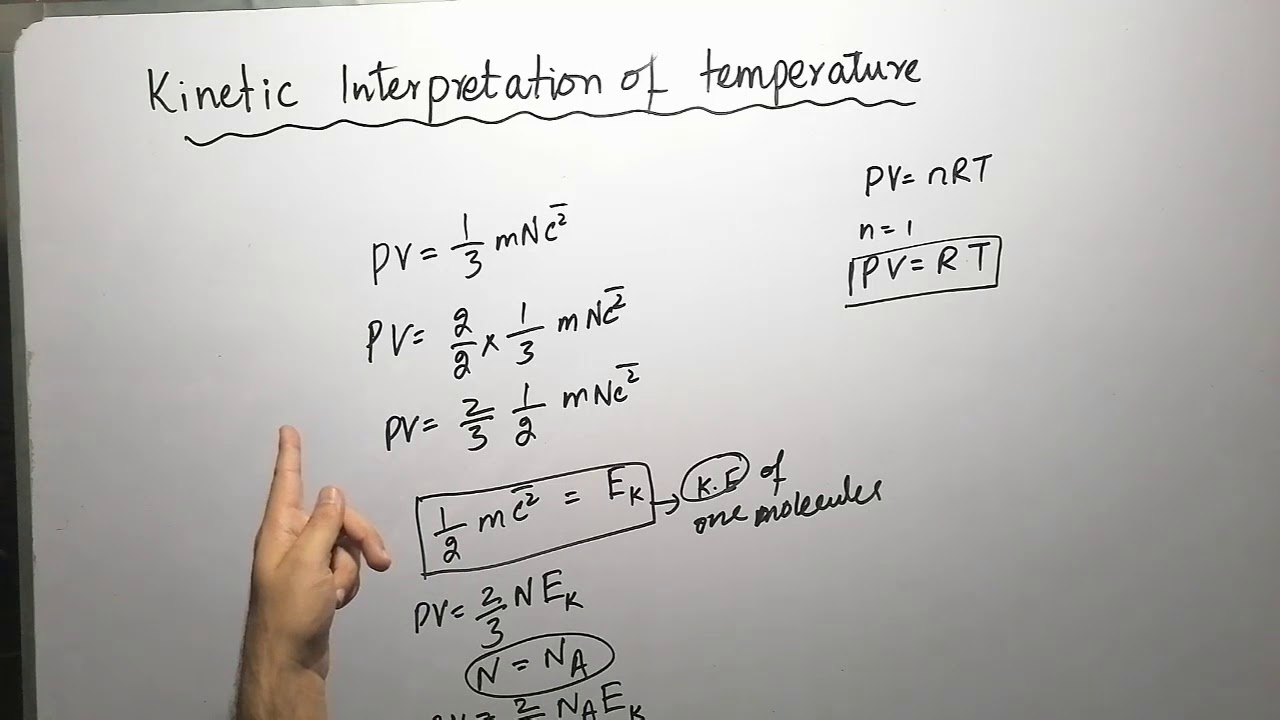 Kinetic Interpretation of temperature
PV = 1/3 mNc̅²
PV = 2/2 × 1/3 mNc̅²
PV = 2/3 1/2 mNc̅²
1/2 mc̅² = E_K → K.E of
one molecules
PV = 2/3 N E_K
N = N_A
PV = 2/3 N_A E_K
PV = nRT
n = 1
PV = RT